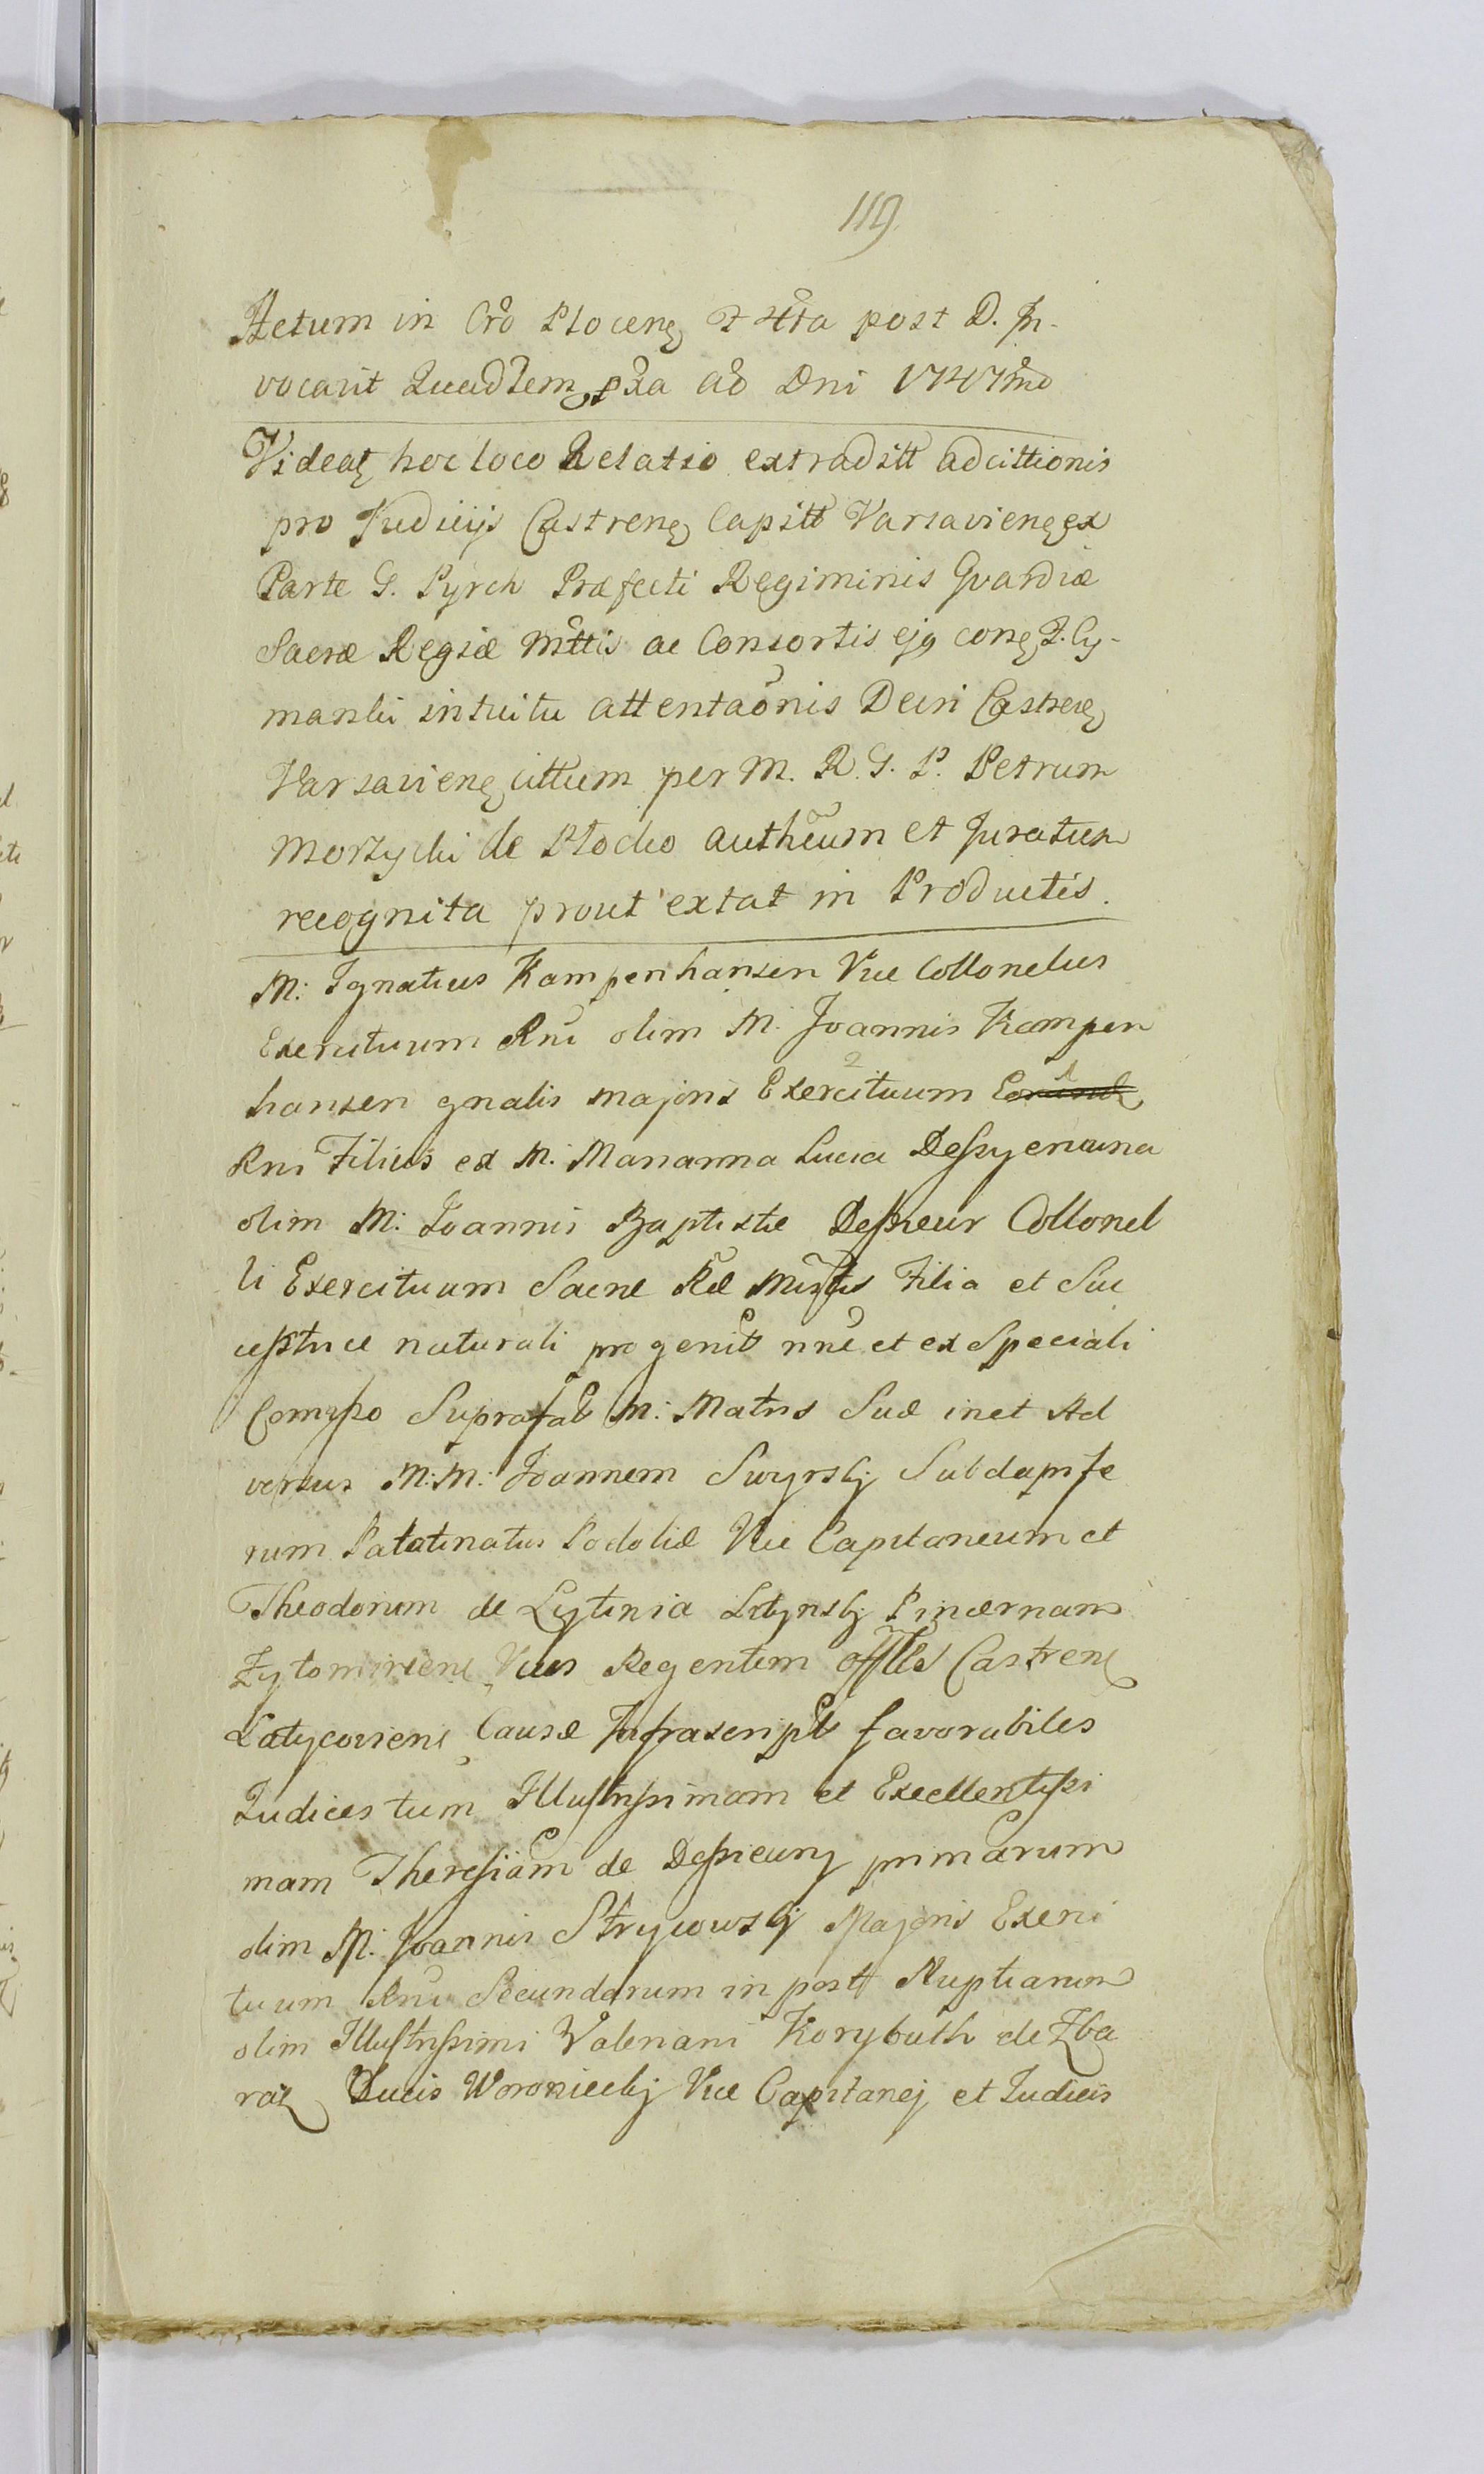 119.
Actum in Cro Plocen f 4ta post D. In-
vocavit Quadrem pxa ao Dni 1747mo
Videat hoc loco Relatio extraditt adcittionis
pro Judicijs Castren Capitt Varsavien ex
Parte G. Pyrch Præfecti Regiminis Gvardiæ
Sacræ Regiæ Mttis ac Consortis ejq con G. Cy-
manski intuitu attentaonis Decri Castren
Varsavien cittum per M. R. G. P. Petrum
Morzycki de Plockoautheum et Juratum
recognita prout extat in Productis.
M: Ignatius Kampenhansen Vice Collonelus
Exercituum Rni olim M. Joannis Kampen
hansen gnalis majoris Exercituum
Rni Filius ex M. Marianna Lucia Despyeruna
olim M: Joannis Baptistæ Despeur Collonel
li Exercituum Sacræ Ræ Mttis Filia et Suc
cesstrice naturali progenit nne et ex Speciali
Comisso Suprafat M: Matris Suæ inet Ad
versus M:M: Joannem Swyrskj Subdapife
rum Palatinatus Podoliæ Vice Capitaneum et
Theodorum de Lytinia Litynskj Pincernam
Zytomirien Vices Regentem Castren
Latycovien Causæ Infrascript favorabiles
Judices tum Illustrissimam et Excellentissi
mam Theresiam de Despieury primarum
olim M: Joannis Strycowskj Majoris Exerci
tuum Rni Secundarum in post Nuptiarum
olim Illustrissimi Valeriani Korybuth de Zba
raz Ducis Woronieckj Vice Capitanej et Judicis